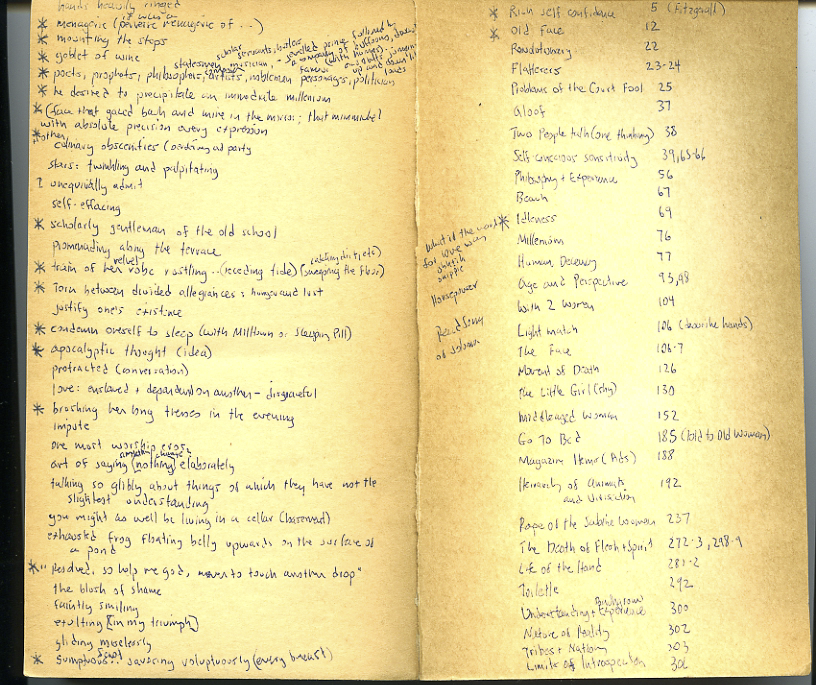 hands heavily ringed
it was a
* menagerie (generic menagerie of ...)
* mounting the steps
* goblet of wine
* poets, prophets, philosophers, artists, noblemen personages, politician
scholar servants, butlers
statesmen musician, - swelled prince followed by
a company of buffoons,
famous
up and down
* he desired to precipitate an immediate millenium
* (face that gazed back and mine in the mirror; that mimicked
with absolute precision every expression
* other
culinary obscenities (ordering at party
stars: twinkling and palpitating
? unequivally admit
self-effacing
* scholarly gentleman of the old school
promenading along the terrace
velvet
* train of her robe rustling .. (receding tide) (sweeping the floor)
* Torn between divided allegiances: hunger and lust
justify one's existence
* condemn oneself to sleep (with Milltown or Sleeping Pill)
* apocalyptic thought (idea)
protracted (conversation)
love: enslaved + dependent on another - disgraceful
* brushing her long tresses in the evening
impute
one must worship
art of saying [nothing] elaborately
talking so glibly about things of which they have not the
slightest understanding
you might as well be living in a cellar (basement)
exhausted frog floating belly upwards on the surface of
a pond
* "Resolved, so help me god, never to touch another drop"
the blush of shame
faintly smiling
exulting [in my triumph]
gliding noiselessly
* Sumptuous .. savoring voluptuously (every breast)
* Rich self confidence 5 (Fitzgerald)
* Old Face 12
Revolutionary 22
Flatterers 23-24
Problems of the Court Fool 25
Aloof 37
Two People talk (one thinking) 38
Self conscious sensitivity 39, 65-66
Philosophy + Experience 56
Beach 67
* Idleness 69
what is the word
for love was
Millenium 76
Human Decency 77
Age and Perspective 93, 98
Horsepower
With 2 Women 104
Light match 106 (describe hands)
Read Song
of Solomon
The Face 106-7
Moment of Death 126
The Little Girl (shy) 130
Middleaged Woman 152
Go To Bed 185 (told to Old Woman)
Magazine Items (Ads) 188
Hierarchy of Animals 192
and Civilization
Rape of the Sabine Women 237
The Death of Flesh + Spirit 272-3, 298-9
Life of the Hand 281-2
Toilette 292
Understanding + Experience 300
Nature of Reality 302
Tribes + Nations 303
Limits of Introspection 306